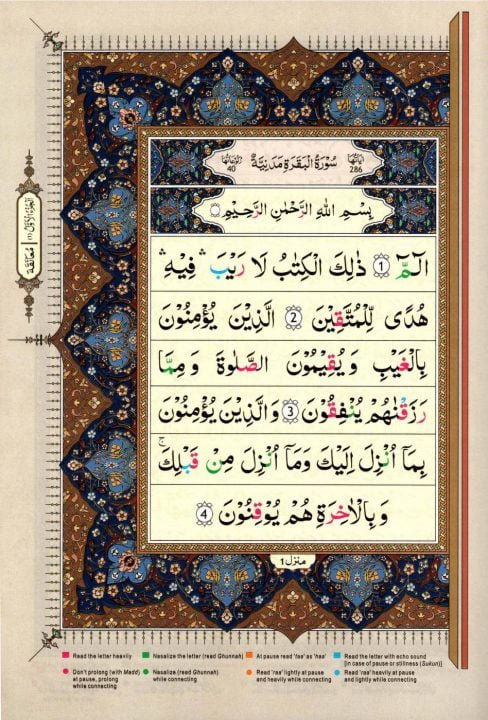 سُوْرَةُ الْبَقَرَةِ مَدَنِيَّةٌ
اٰيَاتُهَا 286
رُكُوْعَاتُهَا 40
بِسْمِ اللّٰهِ الرَّحْمٰنِ الرَّحِيْمِ
الٓمّٓ ۚ 1 ذٰلِكَ الْكِتٰبُ لَا رَيْبَ ۛ فِيْهِ ۛ
هُدًى لِّلْمُتَّقِيْنَ 2 الَّذِيْنَ يُؤْمِنُوْنَ
بِالْغَيْبِ وَ يُقِيْمُوْنَ الصَّلٰوةَ وَ مِمَّا
رَزَقْنٰهُمْ يُنْفِقُوْنَ 3 وَالَّذِيْنَ يُؤْمِنُوْنَ
بِمَآ اُنْزِلَ اِلَيْكَ وَمَآ اُنْزِلَ مِنْ قَبْلِكَ ۚ
وَ بِالْاٰخِرَةِ هُمْ يُوْقِنُوْنَ 4
منزل 1
معانقة
Read the letter heavily
Nasalize the letter (read Ghunnah)
At pause read 'taa' as 'haa'
Read the letter with echo sound
[in case of pause or stillness (Sukon)]
Don't prolong (with Madd)
at pause, prolong
while connecting
Nasalize (read Ghunnah)
while connecting
Read 'raa' lightly at pause
and heavily while connecting
Read 'raa' heavily at pause
and lightly while connecting